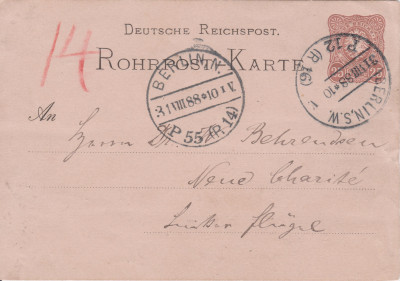 DEUTSCHE REICHSPOST.
14
ROHRPOST-KARTE.
BERLIN, N.
31 VIII 88 * 10 1 V.
P 55 (R.14)
BERLIN, S.W.
31 VIII 88 * 10 V.
P. 12 (R.16)
An
Herrn Dr. Behrendsen
Neue Charité
Linker Flügel